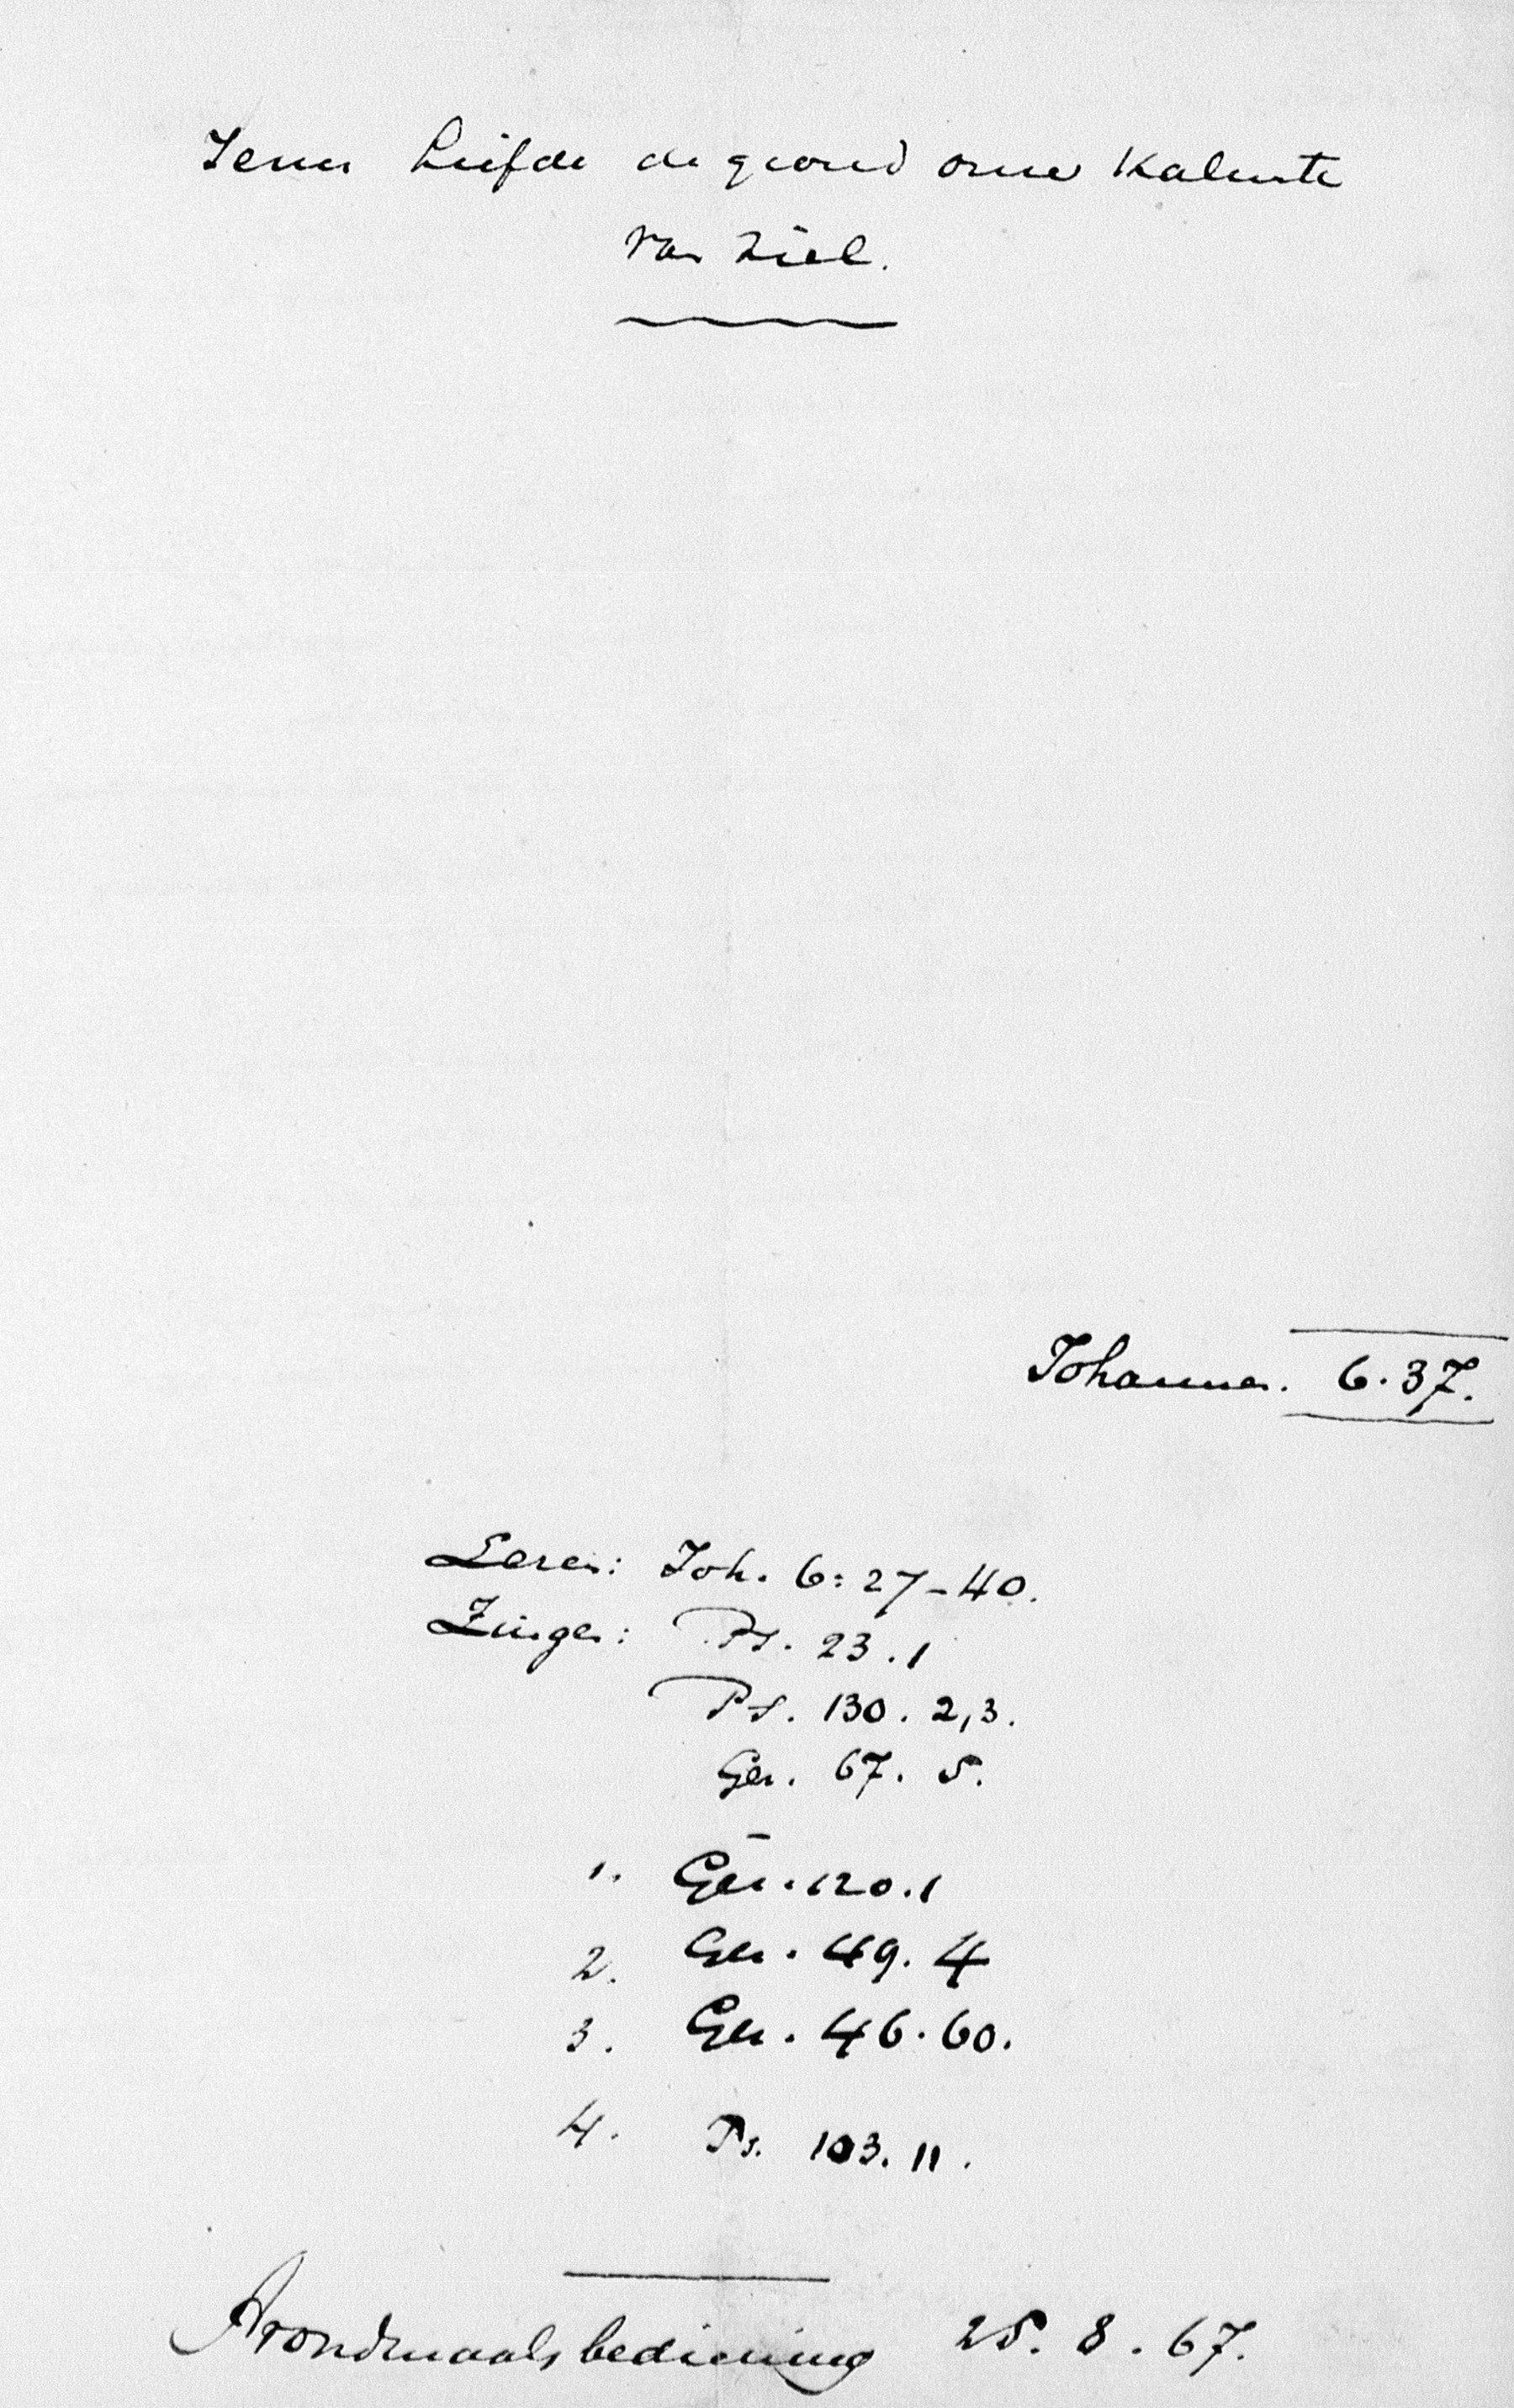 Jezus liefde de grond onzer kalmte
van ziel.
Johannes. 6.37.
Lezen: Joh. 6:27-40.
Zingen: Ps. 23.1
Ps. 130. 2,3.
Gez. 67. 5.
1. Gez. 120.1
2. Gez. 49. 4
3. Gez. 46.60.
4. Ps. 103. 11.
Avondmaalsbediening 25. 8. 67.